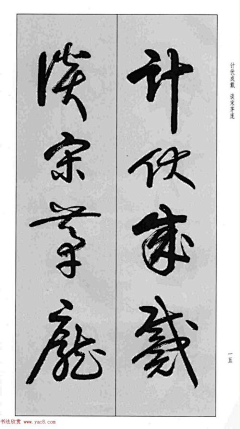 计伏成戴 谈宋茅庞
一五
计伏成戴
谈宋茅龐
书法欣赏 www.yac8.com